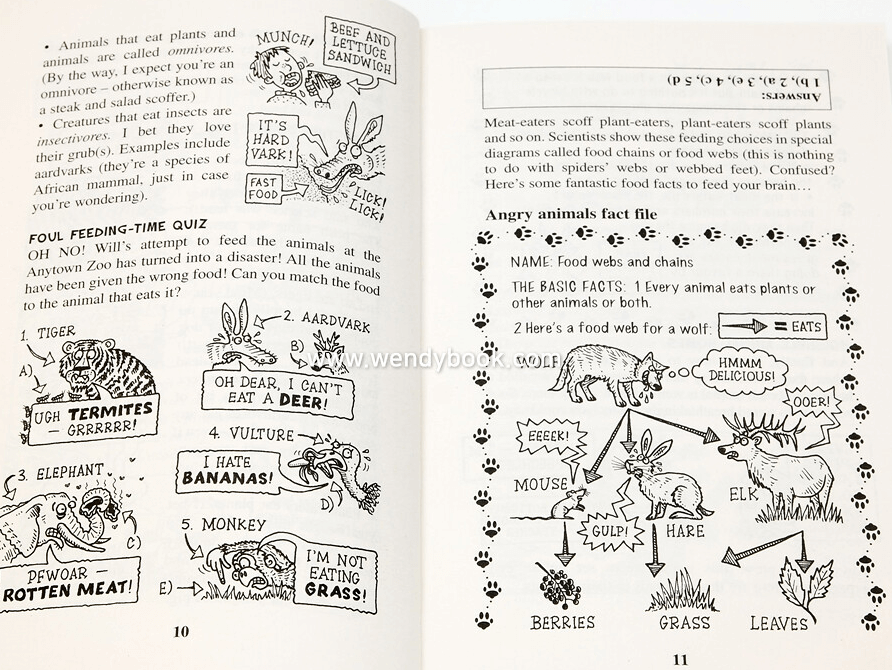 • Animals that eat plants and
animals are called omnivores.
(By the way, I expect you're an
omnivore – otherwise known as
a steak and salad scoffer.)
• Creatures that eat insects are
insectivores. I bet they love
their grub(s). Examples include
aardvarks (they're a species of
African mammal, just in case
you're wondering).
MUNCH!
BEEF AND
LETTUCE
SANDWICH
IT'S
HARD
VARK!
FAST
FOOD
LICK!
LICK!
FOUL FEEDING-TIME QUIZ
OH NO! Will's attempt to feed the animals at the
Anytown Zoo has turned into a disaster! All the animals
have been given the wrong food! Can you match the food
to the animal that eats it?
1. TIGER
A)
UGH TERMITES
– GRRRRRR!
2. AARDVARK
B)
OH DEAR, I CAN'T
EAT A DEER!
3. ELEPHANT
C)
PFWOAR –
ROTTEN MEAT!
4. VULTURE
I HATE
BANANAS!
D)
5. MONKEY
E)
I'M NOT
EATING
GRASS!
10
www.wendybook.com
Answers:
1 b), 2 a), 3 e), 4 c), 5 d)
Meat-eaters scoff plant-eaters, plant-eaters scoff plants
and so on. Scientists show these feeding choices in special
diagrams called food chains or food webs (this is nothing
to do with spiders' webs or webbed feet). Confused?
Here's some fantastic food facts to feed your brain…
Angry animals fact file
NAME: Food webs and chains
THE BASIC FACTS: 1 Every animal eats plants or
other animals or both.
2 Here's a food web for a wolf:
= EATS
WOLF
HMMM
DELICIOUS!
OOER!
EEEEK!
MOUSE
GULP!
HARE
ELK
BERRIES
GRASS
LEAVES
11